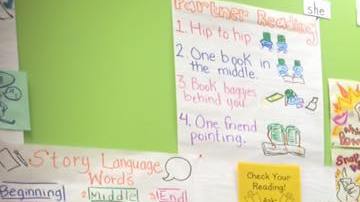 Partner Reading
she
1. Hip to hip
2. One book in
the middle.
3. Book baggies
behind you
4. One friend
pointing.
Story Language
Words
Beginning
Middle
End
Check Your
Reading!